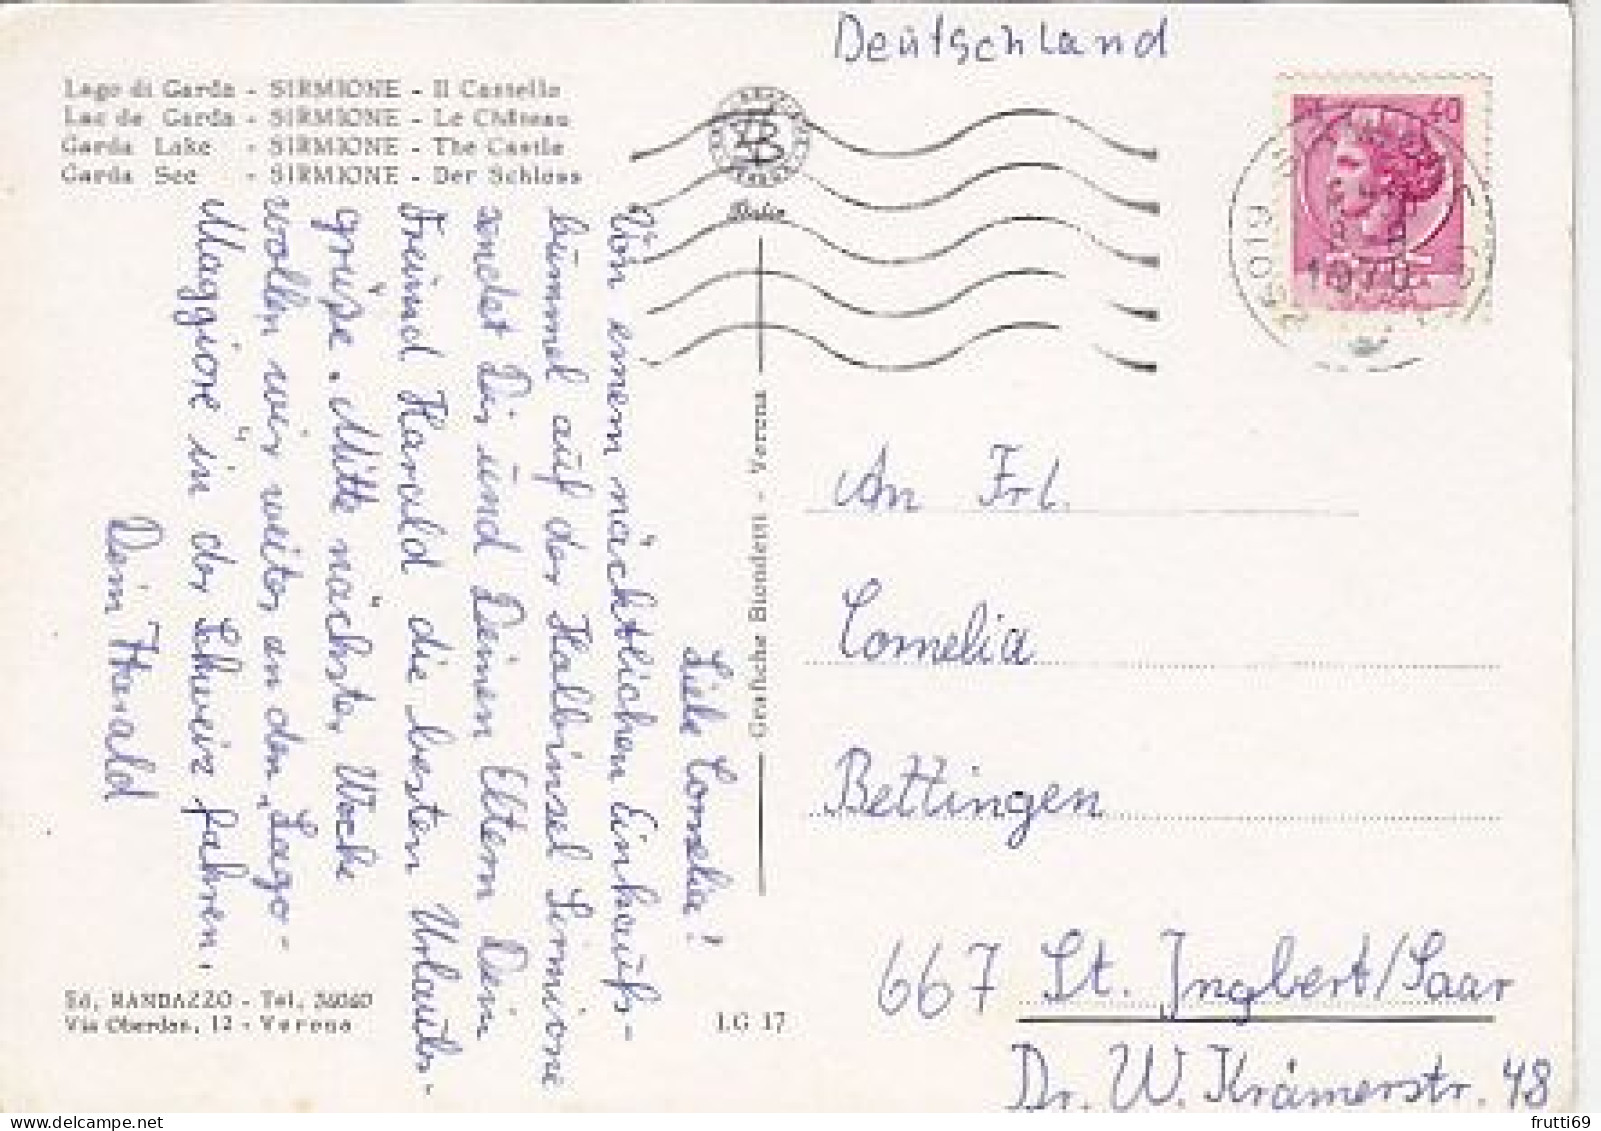 Deutschland
Lago di Garda - SIRMIONE - Il Castello
Lac de Garda - SIRMIONE - Le Château
Garda Lake - SIRMIONE - The Castle
Garda See - SIRMIONE - Der Schloss
Italia
60
25019
1970
Liebe Cornelia!
Von einem nächtlichen Einkaufs-
bummel auf der Halbinsel Sirmione
sendet Dir und Deinen Eltern Dein
Freund Harald die besten Urlaubs-
grüße. Mitte nächster Woche
wollen wir weiter an den „Lago-
Maggiore in der Schweiz fahren.
Dein Harald
Grafiche Biondetti - Verona
An Frl.
Cornelia
Bettingen
667 St. Ingbert/Saar
Dr. W. Krämerstr. 48
Ed. RANDAZZO - Tel. 34040
Via Oberdan, 12 - Verona
LG 17
frutti69
delcampe.net